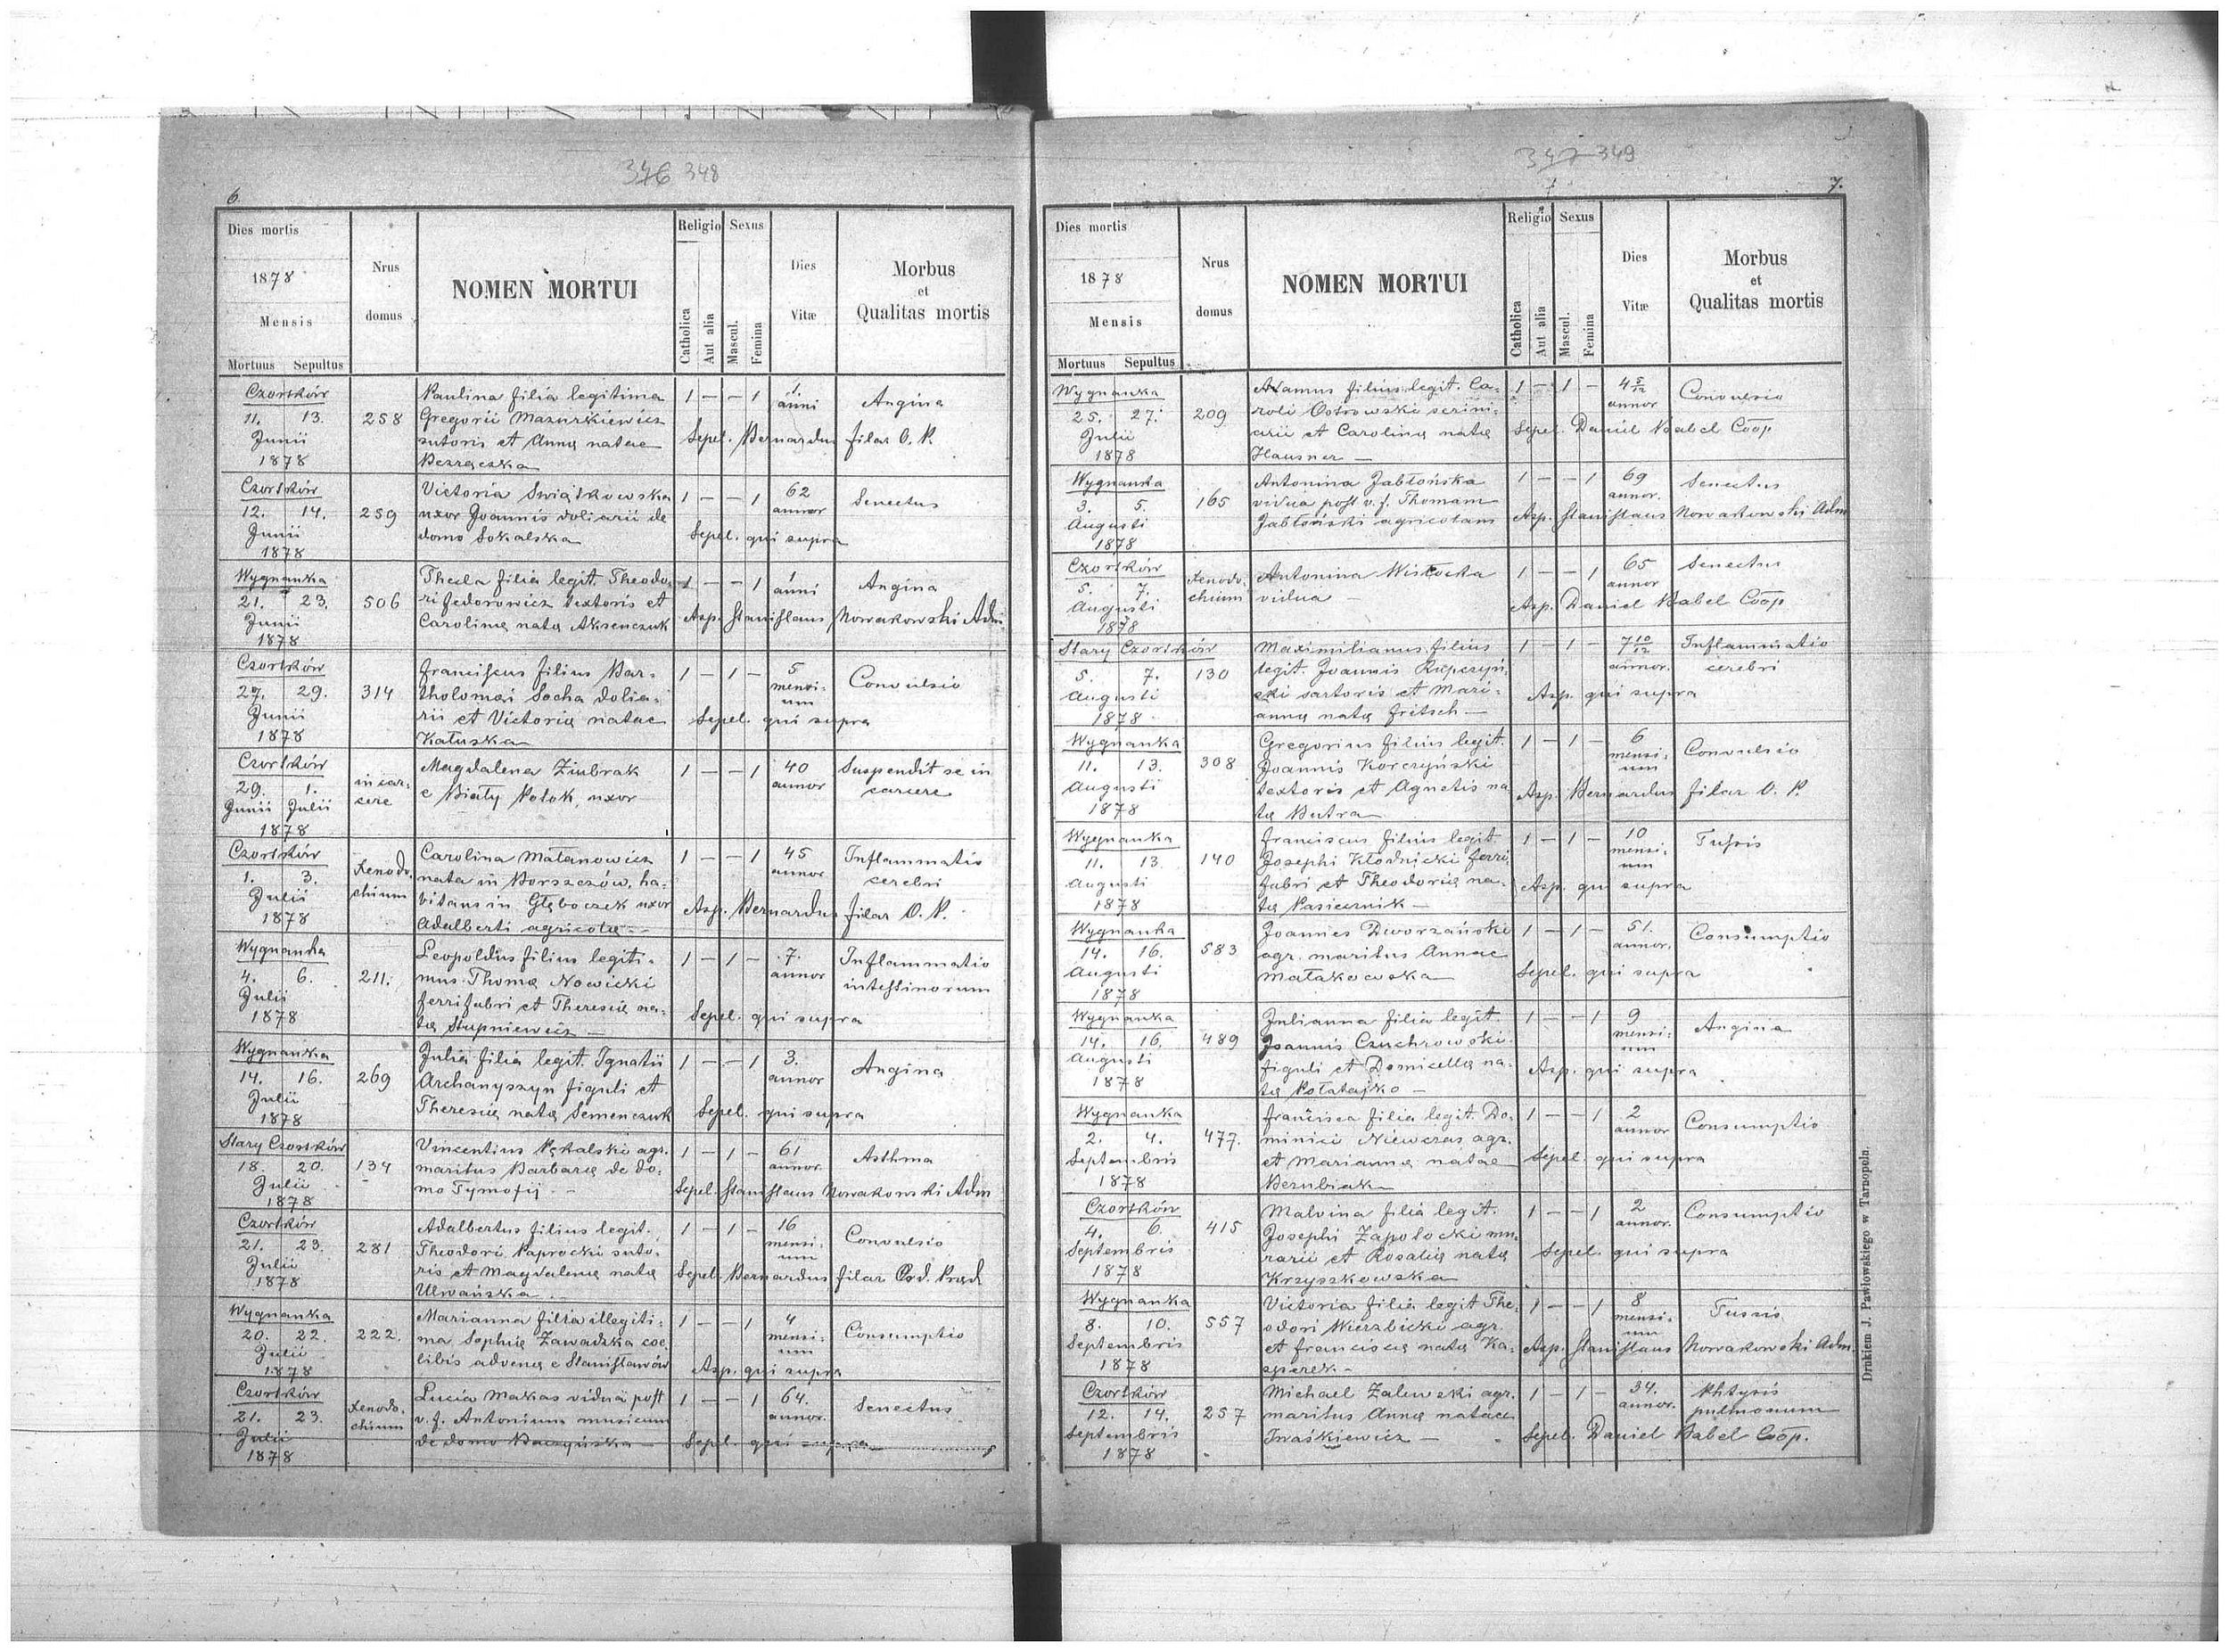 346 348
6.
Dies mortis
1878
Mensis
Mortuus Sepultus
Nrus
domus
NOMEN MORTUI
Religio
Catholica
Aut alia
Sexus
Mascul.
Femina
Dies
Vitæ
Morbus
et
Qualitas mortis
Czortków
11. 13.
Junii
1878
258
Paulina filia legitima
Gregorii Mazurkiewicz
sutoris et Annæ natae
1 — — 1
1.
anni
Angina
Sepel. Bernardus filar O. P.
Czortków
12. 14.
Junii
1878
259
Victoria Swiątkowska
uxor Joannis doliarii de
domo Sokalska
1 — — 1
62
annor
Senectus
Sepel. qui supra
Wygnanka
21. 23.
Junii
1878
506
Thecla filia legit. Theodo-
ri fedorowicz textoris et
Carolinæ natæ Aksenczuk
1 — — 1
1
anni
Angina
Asp. Stanislaus Nowakowski Adm.
Czortków
27. 29.
Junii
1878
314
franciscus filius Bar-
tholomæi Socha dolia-
rii et Victoriæ natae
Kałuska
1 — 1 —
5
mensi-
um
Convulsio
Sepel. qui supra
Czortków
29. 1.
Junii Julii
1878
in car-
cere
Magdalena Ziubrak
e Biały Potok, uxor
1 — — 1
40
annor
Suspendit se in
carcere
Czortków
1. 3.
Julii
1878
Xenodo-
chium
Carolina Matanowicz
nata in Borszczów, ha-
bitans in Głęboczek uxor
Adalberti agricolæ —
1 — — 1
45
annor
Inflammatio
cerebri
Asp. Bernardus filar O. P.
Wygnanka
4. 6.
Julii
1878
211.
Leopoldus filius legiti-
mus Thomæ Nowicki
ferrifabri et Theresiæ na-
tæ Stupniewicz —
1 — 1 —
7.
annor
Inflammatio
intestinorum
Sepel. qui supra
Wygnanka
14. 16.
Julii
1878
269
Julia filia legit. Ignatii
Archanyszyn figuli et
Theresiæ natæ Semenczuk
1 — — 1
3.
annor
Angina
Sepel. qui supra
Stary Czortków
18. 20.
Julii
1878
134
Vincentius Pękalski agr.
maritus Barbaræ de do-
mo Tymofij —
1 — 1 —
61
annor.
Asthma
Sepel. Stanislaus Nowakowski Adm
Czortków
21. 23.
Julii
1878
281
Adalbertus filius legit.
Theodori Paprocki suto-
ris et Magdalenæ natæ
Ulwańska —
1 — 1 —
16
mensi-
um
Convulsio
Sepel. Bernardus filar Ord. Præd
Wygnanka
20. 22.
Julii
1878
222.
Marianna filia illegiti-
ma Sophiæ Zawadzka coe-
libis advenæ e Stanisławów
1 — — 1
4
mensi-
um
Consumptio
Asp. qui supra
Czortków
21. 23.
Julii
1878
Xenodo-
chium
Lucia Makas vidua post
v. f. Antonium musicum
de domo Baczyńska —
1 — — 1
64.
annor.
Senectus
Sepl. qui supra
347 349
7.
Dies mortis
1878
Mensis
Mortuus Sepultus
Nrus
domus
NOMEN MORTUI
Religio
Catholica
Aut alia
Sexus
Mascul.
Femina
Dies
Vitæ
Morbus
et
Qualitas mortis
Wygnanka
25. 27.
Julii
1878
209
Adamus filius legit. Ca-
roli Ostrowski scrini-
arii et Carolinæ natæ
Hausner —
1 — 1 —
4 5/12
annor
Convulsio
Sepel. Daniel Babel Coop
Wygnanka
3. 5.
Augusti
1878
165
Antonina Jabłońska
vidua post v. f. Thomam
Jabłoński agricolam
1 — — 1
69
annor.
Senectus
Asp. Stanislaus Nowakowski Adm
Czortków
5. 7.
Augusti
1878
Xenodo-
chium
Antonina Wisłocka
vidua —
1 — — 1
65
annor
Senectus
Asp. Daniel Babel Coop
Stary Czortków
5. 7.
Augusti
1878
130
Maximilianus filius
legit. Joannis Rupczyń-
ski sartoris et Mari-
annæ natæ fritsch —
1 — 1 —
7 10/12
annor.
Inflammatio
cerebri
Asp. qui supra
Wygnanka
11. 13.
Augusti
1878
308
Gregorius filius legit.
Joannis Korczyński
textoris et Agnetis na
tæ Butra —
1 — 1 —
6
mensi-
um
Convulsio
Asp. Bernardus filar O. P.
Wygnanka
11. 13.
Augusti
1878
140
franciscus filius legit
Josephi Kłodnicki ferri
fabri et Theodoriæ na-
tæ Pasicernik —
1 — 1 —
10
mensi-
um
Tussis
Asp. qui supra
Wygnanka
14. 16.
Augusti
1878
583
Joannes Dworzański
agr. maritus Annae
Matakowska
1 — 1 —
51.
annor.
Consumptio
Sepel. qui supra
Wygnanka
14. 16.
Augusti
1878
489
Julianna filia legit
Joannis Czuchrowski
figuli et Domicellæ na-
tæ Połatajko —
1 — — 1
9
mensi-
um
Angina
Asp. qui supra
Wygnanka
2. 4.
Septembris
1878
477.
francisca filia legit. Do-
minici Niewczas agr.
et Mariannæ natae
Bezubiak
1 — — 1
2
annor
Consumptio
Sepel. qui supra
Czortków
4. 6.
Septembris
1878
415
Malvina filia legit.
Josephi Zapolocki mu-
rarii et Rosaliæ natæ
Krzyszkowska
1 — — 1
2
annor.
Consumptio
Sepel. qui supra
Wygnanka
8. 10.
Septembris
1878
557
Victoria filia legit The-
odori Wierzbicki agr.
et franciscæ natæ Ka-
sperek —
1 — — 1
8
mensi-
um
Tussis
Asp. Stanislaus Nowakowski Adm.
Czortków
12. 14.
Septembris
1878
257
Michael Zalewski agr.
maritus Annæ natae
Iwaśkiewicz —
1 — 1 —
34.
annor.
Phtysis
pulmonum
Sepel. Daniel Babel Coop.
Drukiem J. Pawłowskiego w Tarnopolu.